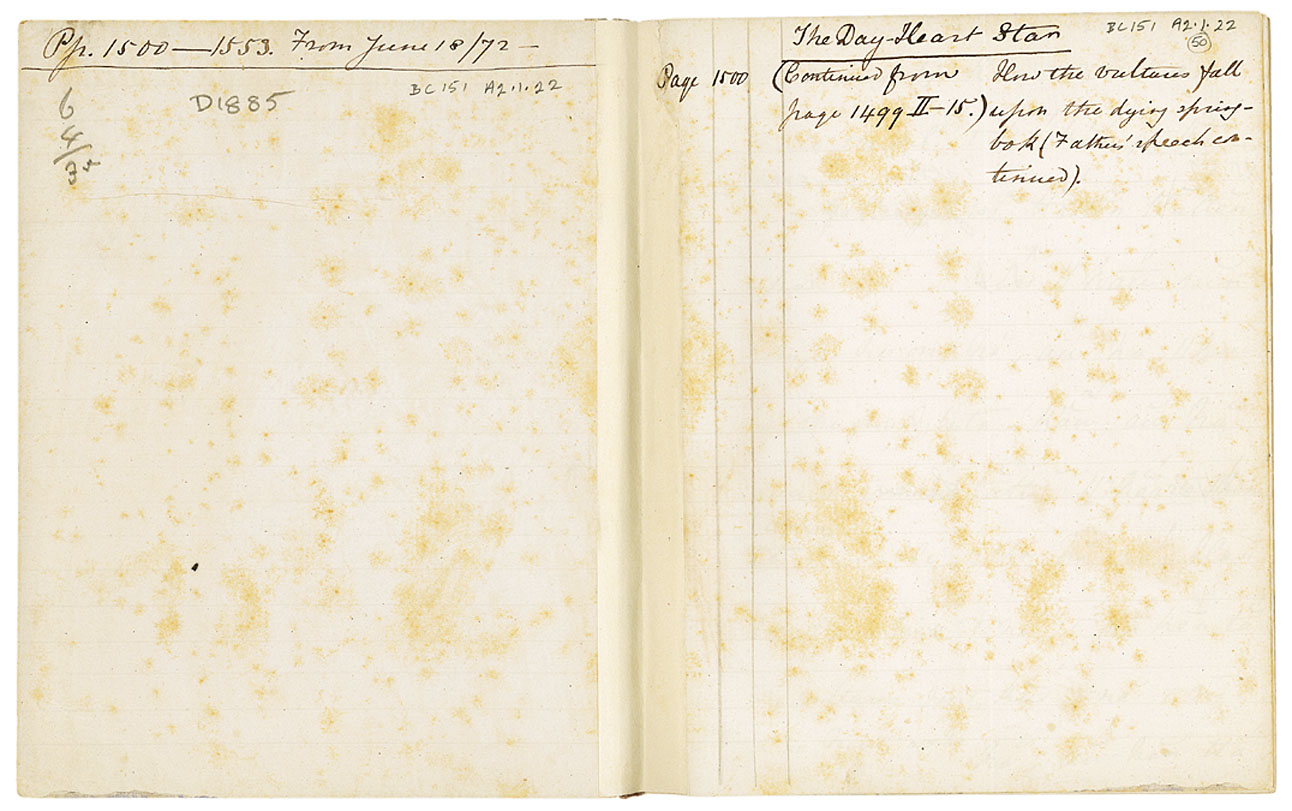 Pp. 1500—1553. From June 18/72 —
BC151 A2.1.22
D1885
6
4/
The Day-Heart Star
BC151 A2.1.22
50
Page 1500 (Continued from How the vultures fall
page 1499 II-15.) upon the dying spring-
bok (Father's speech con-
tinued).